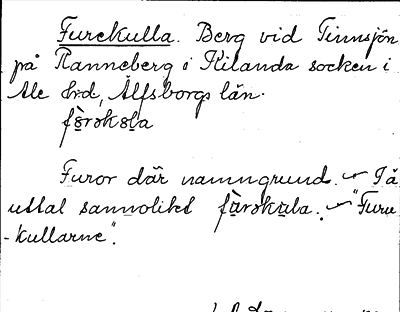 Furekulla. Berg vid Tinnsjön
på Ranneberg i Kilanda socken i
Ale hrd, Älfsborgs län.
fùrəkɷla
Furor där namngrund. – På
uttal sannolikt fùrəkɷla. – "Furu
-kullarne".